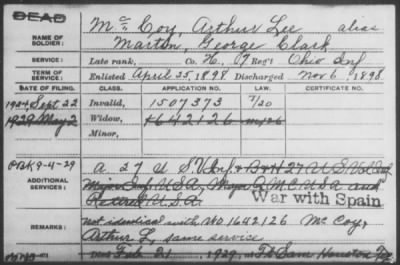 DEAD
NAME OF SOLDIER: McCoy, Arthur Lee alias
Martin, George Clark
SERVICE: Late rank, Co. H, 17 Reg't Ohio Inf
TERM OF SERVICE: Enlisted April 25, 1898 Discharged Nov 6, 1898
DATE OF FILING. CLASS. APPLICATION NO. LAW. CERTIFICATE NO.
1924 Sept. 22 Invalid, 1507373 7/20
1929 May 2 Widow, 1642126
Minor,
9-4-29 A. 27 U.S.V. Inf. + H 27 U.S. Vol. Inf
ADDITIONAL SERVICES: Major Inf. U.S.A., Major Q.M.C. U.S.A. and
Retired U.S.A. War with Spain
REMARKS: not identical with WO 1642126 McCoy,
Arthur L, same service
Died Feb 21, 1929, at Ft Sam Houston Tex